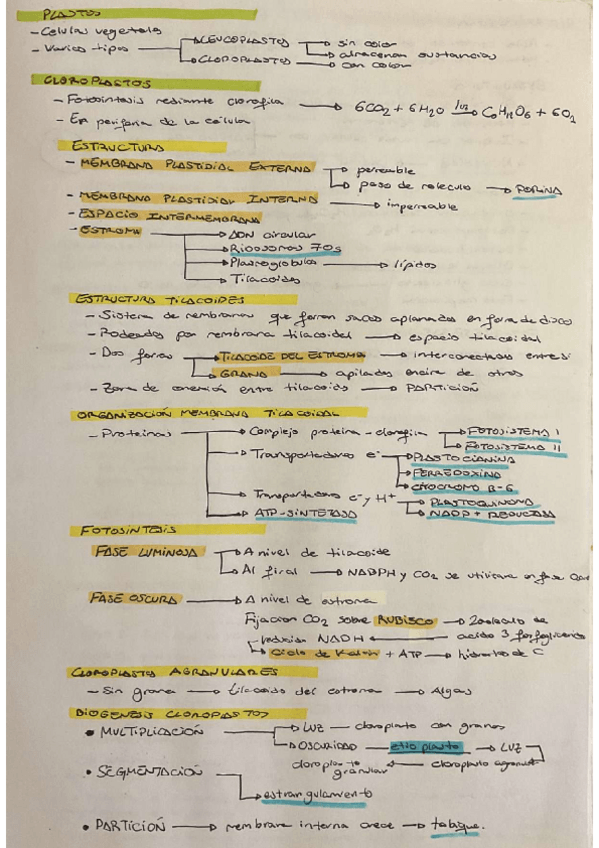 PLASTOS
- Células vegetales
- Varios tipos → LEUCOPLASTOS → sin color
→ almacenan sustancias
→ CLOROPLASTOS → con color
CLOROPLASTOS
- Fotosíntesis mediante clorofila → 6CO2 + 6H2O luz→ C6H12O6 + 6O2
- En periferia de la célula
ESTRUCTURA
- MEMBRANA PLASTIDIAL EXTERNA → permeable
→ paso de molécula → PORINA
- MEMBRANA PLASTIDIAL INTERNA → impermeable
- ESPACIO INTERMEMBRANA
- ESTROMA → ADN circular
→ Ribosomas 70s
→ Plastoglóbulos → lípidos
→ Tilacoides
ESTRUCTURA TILACOIDES
- Sistema de membranas que forman sacos aplanados en forma de disco
- Rodeados por membrana tilacoidal → espacio tilacoidal
- Dos formas → TILACOIDE DEL ESTROMA → interconectados entre sí
→ GRANA → apilados encima de otros
- Zona de conexión entre tilacoides → PARTICIÓN
ORGANIZACIÓN MEMBRANA TILACOIDAL
- Proteínas → Complejo proteína - clorofila → FOTOSISTEMA I
→ FOTOSISTEMA II
→ Transportadores e- → PLASTOCIANINA
→ FERREDOXINA
→ CITOCROMO B-6
→ Transportadores e- y H+ → PLASTOQUINONA
→ ATP-SINTETASA → NADP + REDUCTASA
FOTOSÍNTESIS
FASE LUMINOSA → A nivel de tilacoide
→ Al final → NADPH y CO2 se utilizan en fase
FASE OSCURA → A nivel de estroma
Fijación CO2 sobre RUBISCO → 2 molécula de
reducción NADH ← ácido 3 fosfoglicérico
→ Ciclo de Kalvin + ATP → hidratos de C
CLOROPLASTOS AGRANULARES
- Sin grana → tilacoide del estroma → Algas
BIOGÉNESIS CLOROPLASTOS
• MULTIPLICACIÓN → LUZ — cloroplasto con granos
→ OSCURIDAD — etioplasto → LUZ
cloroplasto granular ← cloroplasto
• SEGMENTACIÓN
→ estrangulamiento
• PARTICIÓN → membrana interna crece → tabique.